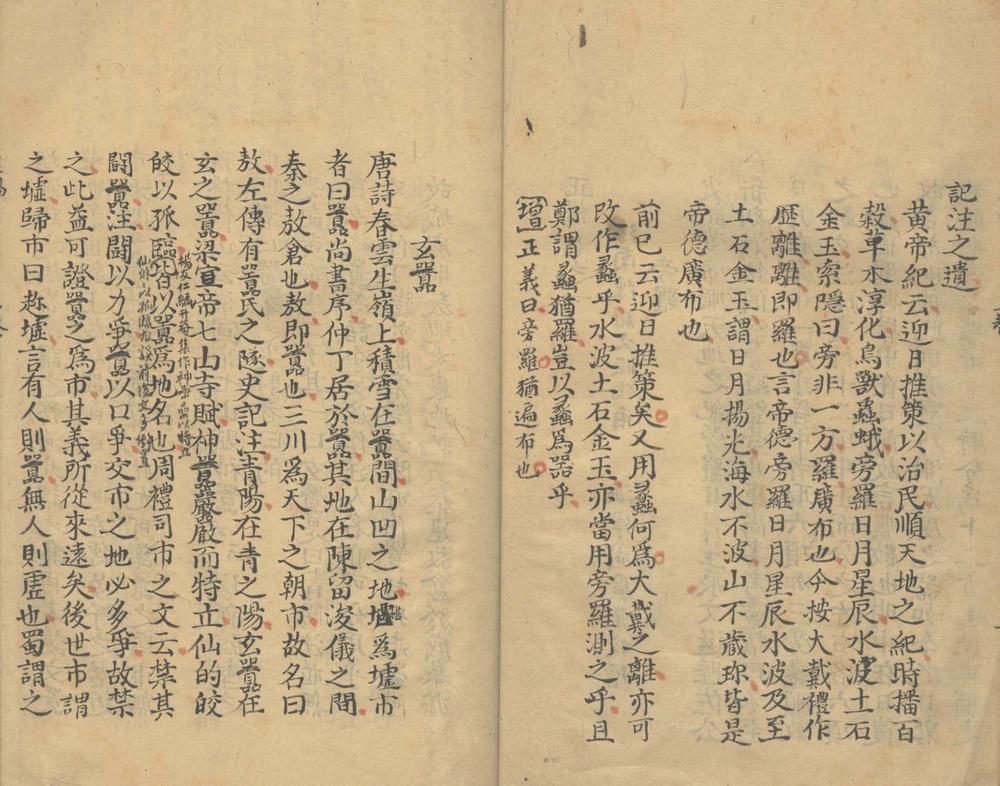 記注之遺
黄帝紀云迎日推策以治民順天地之紀時播百
榖草木淳化鳥獸蟲蛾旁羅日月星辰水波土石
金玉索隠曰旁非一方羅廣布也今按大戴禮作
歴離離即羅也言帝德旁羅日月星辰水波及至
土石金玉謂日月揚光海水不波山不藏珎皆是
帝德廣布也
前已云迎日推策矣又用蠡何爲大戴之離亦可
改作蠡乎水波土石金玉亦當用旁羅測之乎且
鄭謂蠡猶羅豈以蠡爲器乎
正義曰旁羅猶遍布也
玄嚣
唐詩春雲生嶺上積雪在嚻間山凹之地爲墟市
者曰嚻尚書序仲丁居於嚻其地在陳留浚儀之間
秦之敖倉也敖即嚻也三川爲天下之朝市故名曰
敖左傳有嚻氏之隧史記注青陽在青之陽玄嚻在
玄之嚻梁宣帝七山寺賦神嚻嚴嚴而特立仙的皎
皎以孤臨皆以嚻爲地名也周禮司市之文云禁其
鬪嚻注鬪以力爭嚻以口爭交市之地必多爭故禁
之此益可證嚻之爲市其義所從來遠矣後世市謂
之墟歸市曰趂墟言有人則嚻無人則虚也蜀謂之